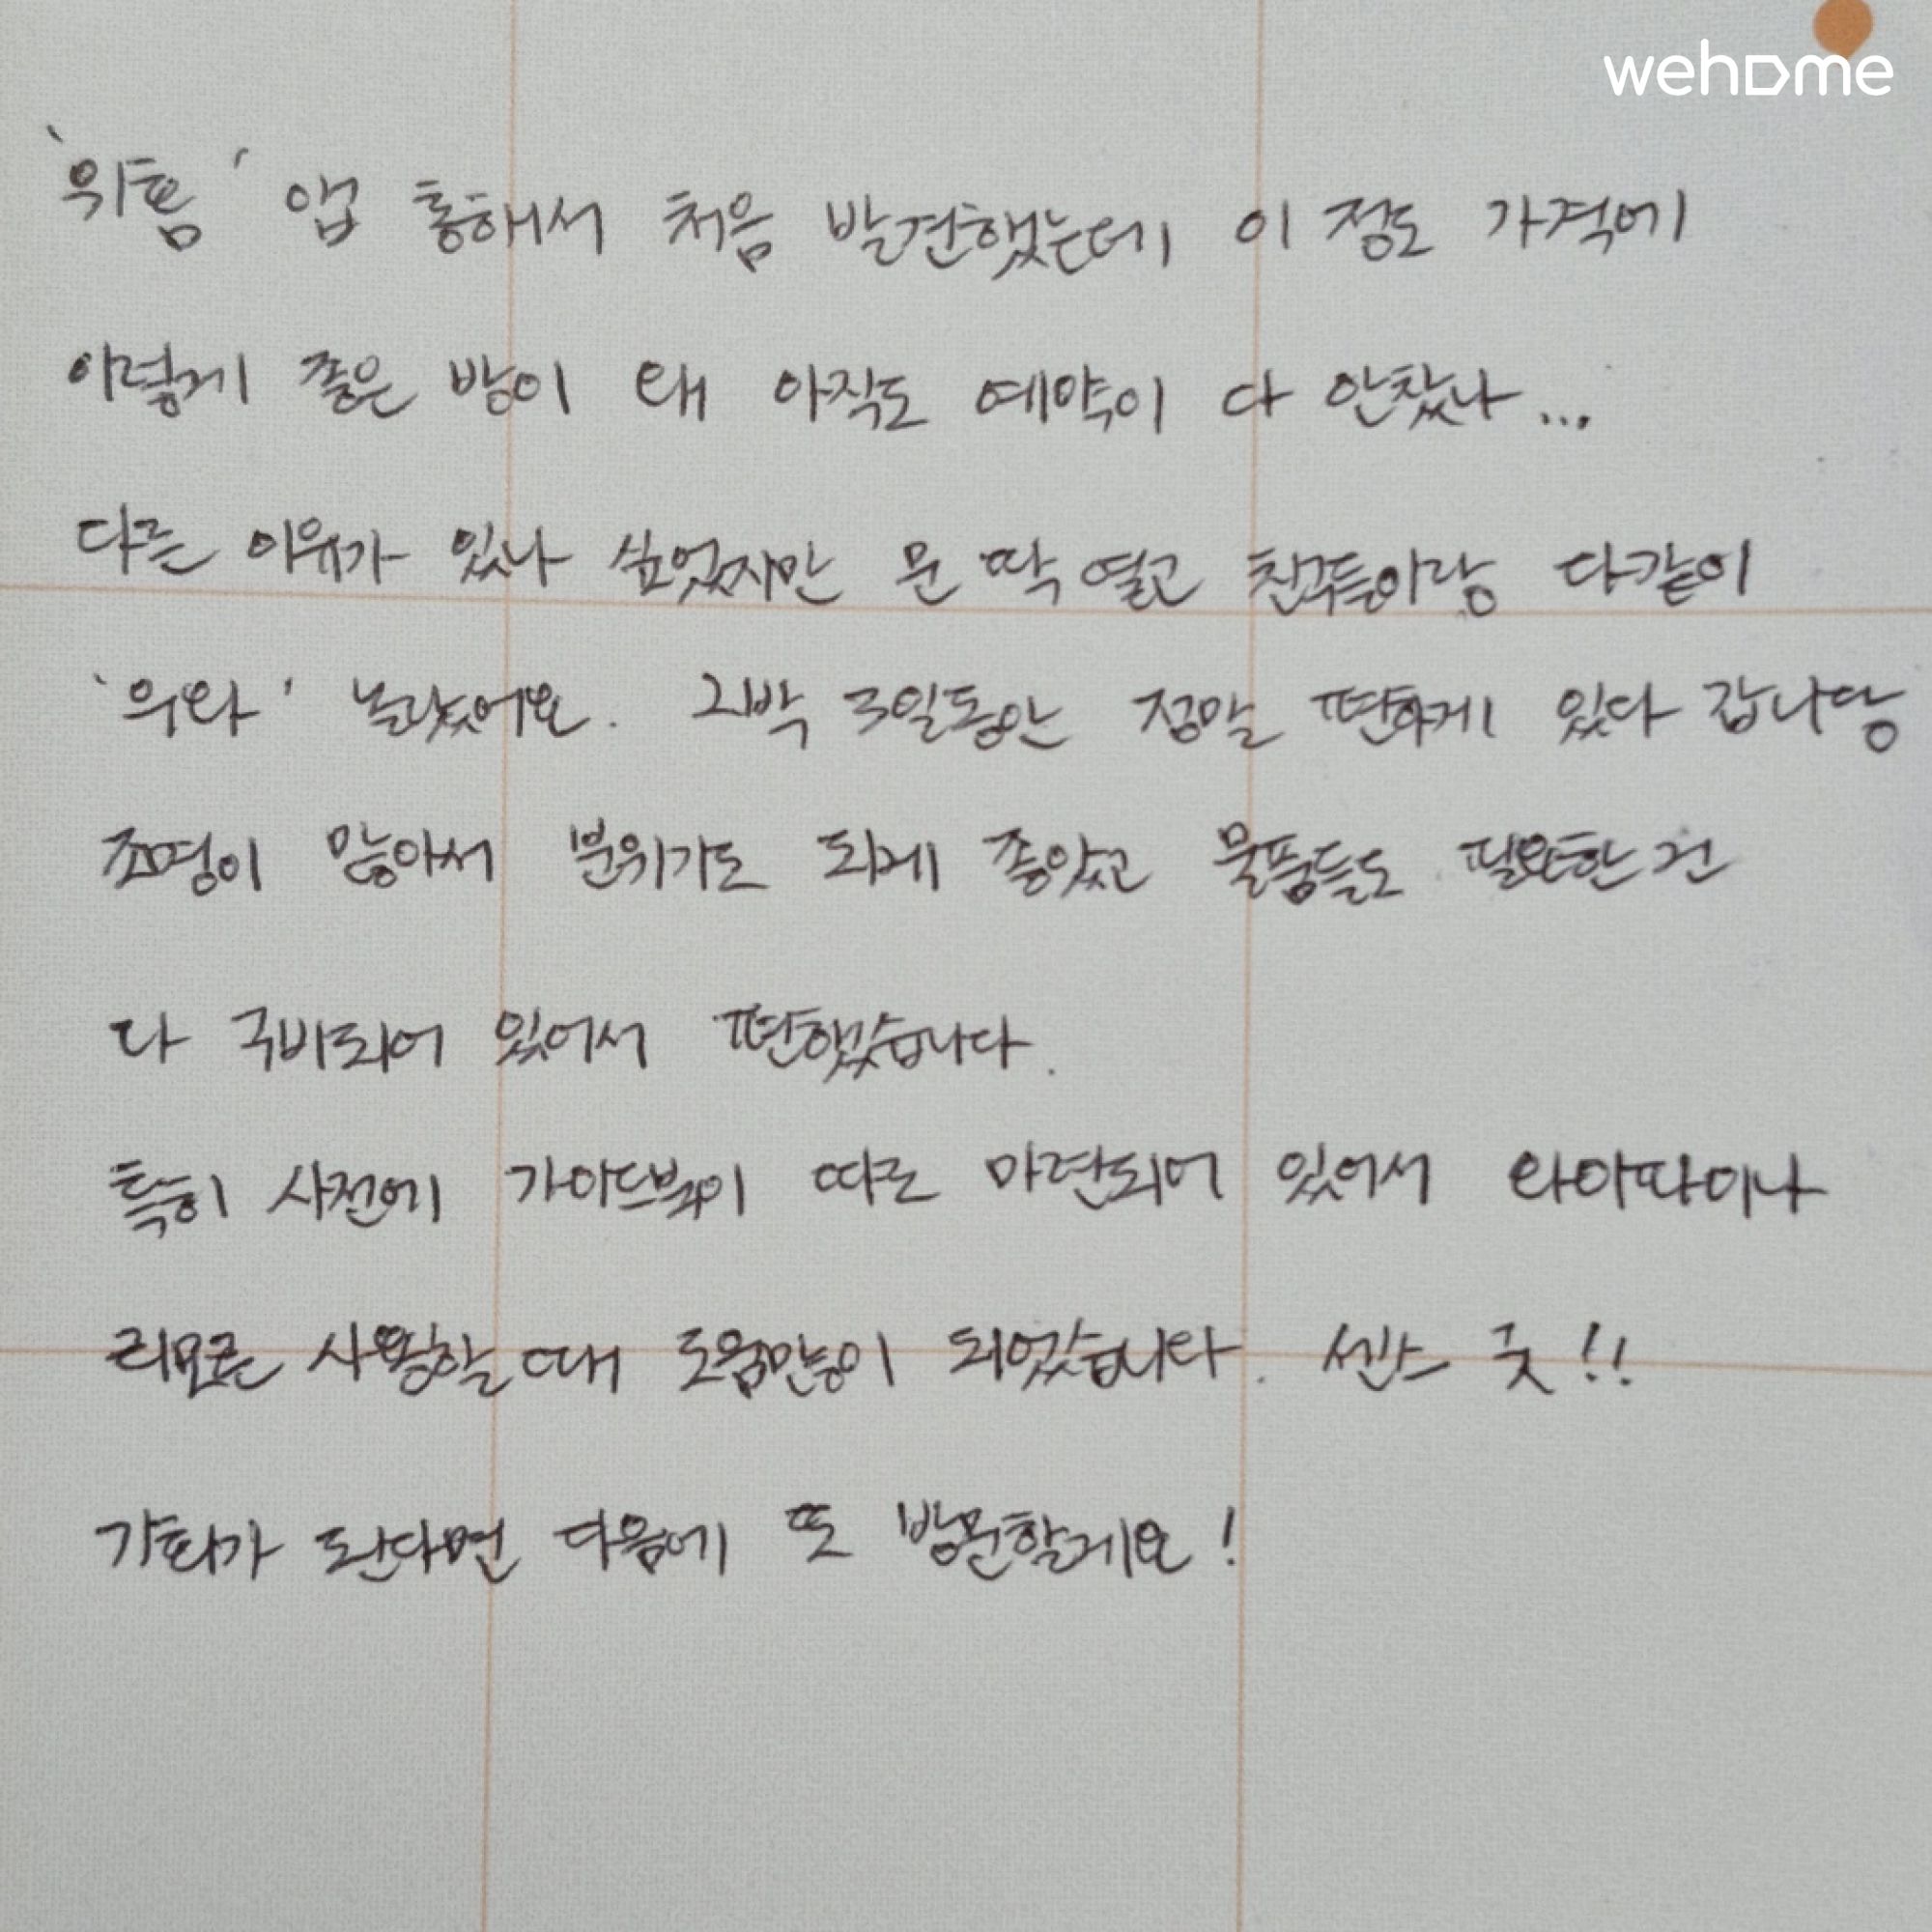 wehome
'위홈' 앱 통해서 처음 발견했는데 이 정도 가격에
이렇게 좋은 방이 왜 아직도 예약이 다 안찼나...
다른 이유가 있나 싶었지만 문 딱 열고 친구들이랑 다같이
'우와' 놀랐어요. 2박 3일동안 정말 편하게 있다 갑니당
조명이 많아서 분위기도 되게 좋았고 물품들도 필요한 건
다 구비되어 있어서 편했습니다.
특히 사전에 가이드북이 따로 마련되어 있어서 와이파이나
리모콘 사용할 때 도움많이 되었습니다. 센스 굿!!
기회가 된다면 다음에 또 방문할게요!